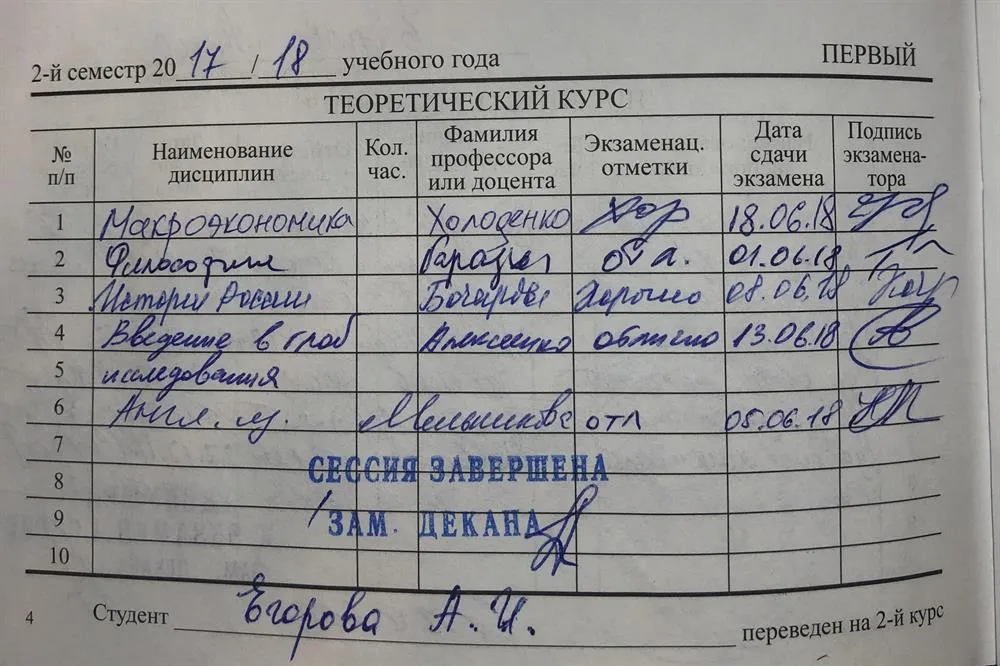 2-й семестр 2017/18 учебного года ПЕРВЫЙ
ТЕОРЕТИЧЕСКИЙ КУРС
№ п/п Наименование дисциплин Кол. час. Фамилия профессора или доцента Экзаменац. отметки Дата сдачи экзамена Подпись экзамена-тора
1 Макроэкономика Холоденко хор 18.06.18
2 Философия отл. 01.06.18
3 История России Бочарова Хорошо 08.06.18
4 Введение в Алексеенко отлично 13.06.18
5 исследования
6 Англ. яз. Мельникова отл 05.06.18
7
8 СЕССИЯ ЗАВЕРШЕНА
9 ЗАМ. ДЕКАНА
10
4 Студент Егорова А. И. переведен на 2-й курс